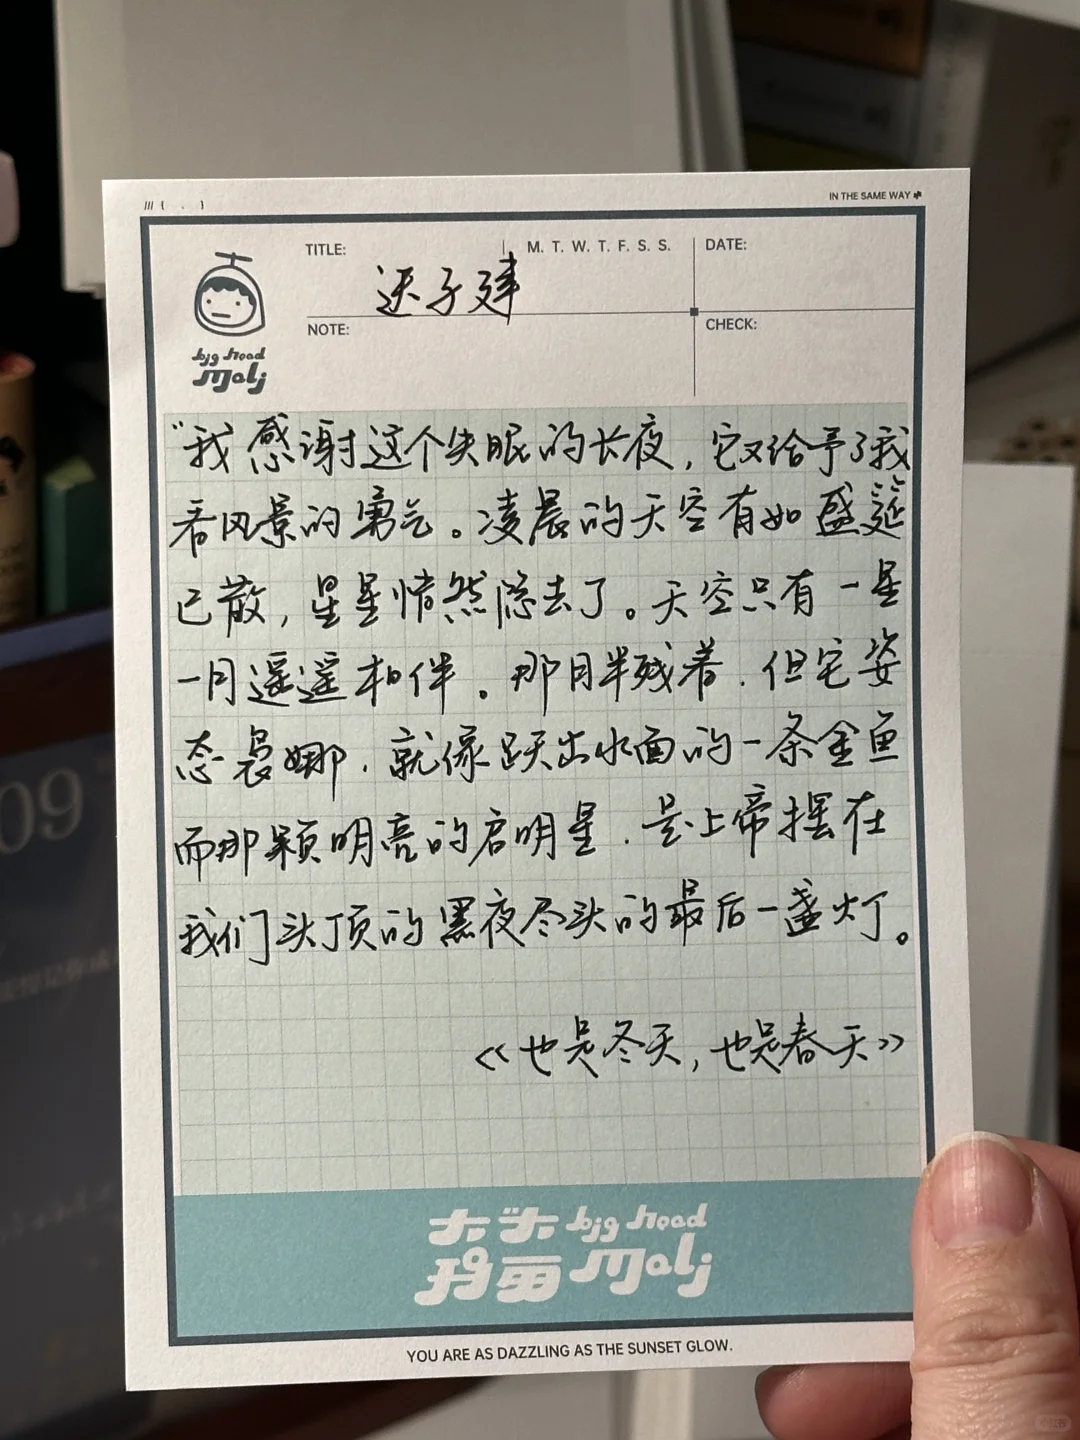 IN THE SAME WAY
TITLE:
M. T. W. T. F. S. S.
DATE:
迟子建
NOTE:
CHECK:
big head
Malj
“我感谢这个失眠的长夜，它又给予了我
看风景的勇气。凌晨的天空有如盛筵
已散，星星悄然隐去了。天空只有一星
一月遥遥相伴。那月半残着，但它姿
态袅娜，就像跃出水面的一条金鱼
而那颗明亮的启明星，是上帝摆在
我们头顶的黑夜尽头的最后一盏灯。
《也是冬天，也是春天》
big head
Malj
YOU ARE AS DAZZLING AS THE SUNSET GLOW.
09
小红书